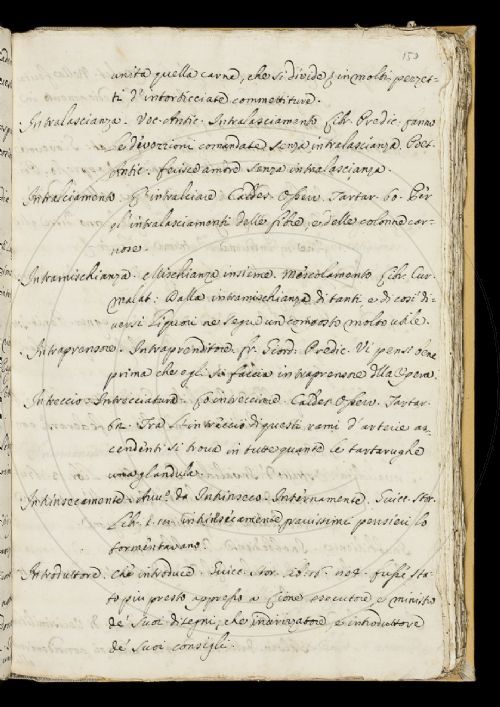 150
unita quella carne, che si divide in molti pezzet-
ti d'intorticciate commettiture.
Intralascianza. Voc. Antic. Intralasciamento. Libr. Predic. fanno
le devozzioni comandate senza intralascianza. Poet.
Antic. senza intralascianza.
Intralciamento. intralciare. Caldes. Osserv. Tartar. 60. Per
gl'intralciamenti delle fibre, e delle colonne car-
nose.
Intramischianza. e Mischianza insieme. Mescolamento. Libr. Cur.
Malat: Dalla intramischianza di tanti, e di così di-
versi Liquori ne segue un composto molto utile.
Intraprensore. Intraprenditore. fr. Giord: Predic. Vi pensi bene
prima che egli si faccia intraprensore dell'Opera.
Intreccio. Intrecciatura. Lo intrecciare. Caldes. Osserv. Tartar.
Tra l'intreccio di questi rami d'arterie as-
cendenti si trova in tutte quante le tartarughe
una glandula.
Intrinsecamente. Avv: da Intrinseco. Internamente. Guicc. Stor.
Libr. intrinsecamente pensieri lo
tormentavano.
Introduttore. Che introduce. Guicc. Stor. 20. 16. fusse sta-
to più presto appresso a Lione esecutore e ministro
de' suoi disegni, che indirizzatore e introduttore
de' suoi consigli.